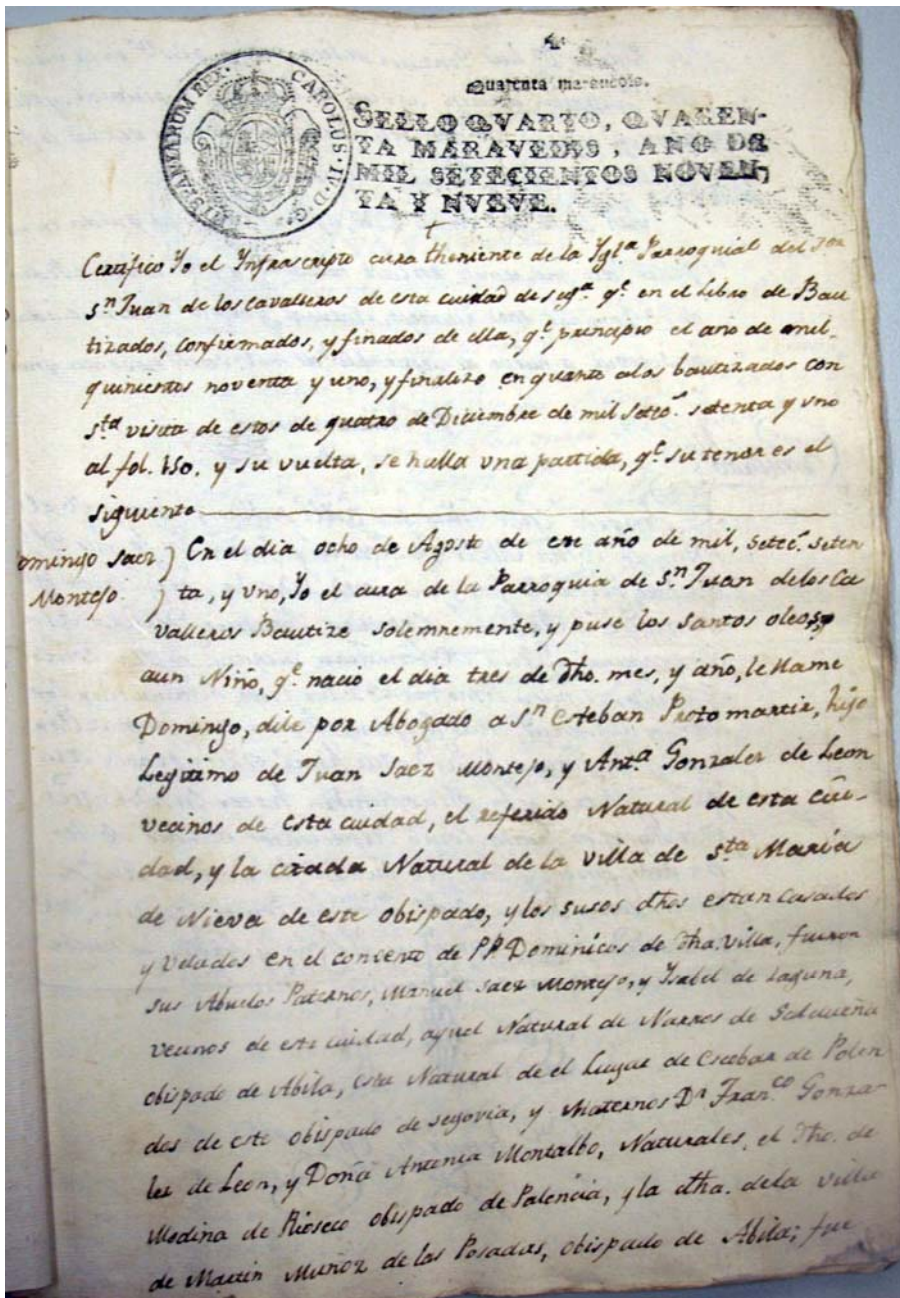 Quarenta maravedis.
HISPANIARUM REX. CAROLUS. II. D. G.
SELLO QVARTO, QVAREN-
TA MARAVEDIS, AÑO DE
MIL SETECIENTOS NOVEN-
TA Y NVEVE.
Certifico Yo el Ynfrascripto cura theniente de la Ygl.ª Parroquial del Sor
Sn Juan de los cavalleros de esta ciudad de Segª. q.e en el Libro de Bau
tizados, confirmados, y finados de ella, q.e principio el año de mil-
quinientos noventa y uno, y finalizo en quanto a los bautizados con
sta visita de estos de quatro de Diciembre de mil setecs. setenta y uno
al fol. 150. y su vuelta, se halla una partida, q.e su tenor es el
siguiente
Domingo Saez ) En el dia ocho de Agosto de este año de mil, setecs. seten
Montejo. ) ta, y uno, Yo el cura de la Parroquia de Sn Juan de los Ca
valleros Bautize solemnemente, y puse los Santos oleos,
a un Niño, q.e nacio el dia tres de dho. mes, y año, le llame
Domingo, dile por Abogado a Sn Esteban Protomartir, hijo
Legitimo de Juan Saez Montejo, y Antª Gonzalez de Leon
vecinos de esta ciudad, el referido Natural de esta ciu-
dad, y la citada Natural de la villa de Sta Maria
de Nieva de este obispado, y los susos dhos estan casados
y Velados en el convento de PP. Dominicos de dha. villa, fueron
sus Abuelos Paternos, Manuel Saez Montejo, y Ysabel de Laguna,
vecinos de esta ciudad, aquel Natural de Narros de Saldueña
obispado de Abila, esta Natural de el Lugar de Escobar de Polen
dos de este obispado de Segovia, y Maternos Dn Franco Gonza-
lez de Leon, y Doña Antonia Montalbo, Naturales, el dho. de
Medina de Rioseco obispado de Palencia, y la dha. de la villa
de Martin Muñoz de las Posadas, obispado de Abila; fue